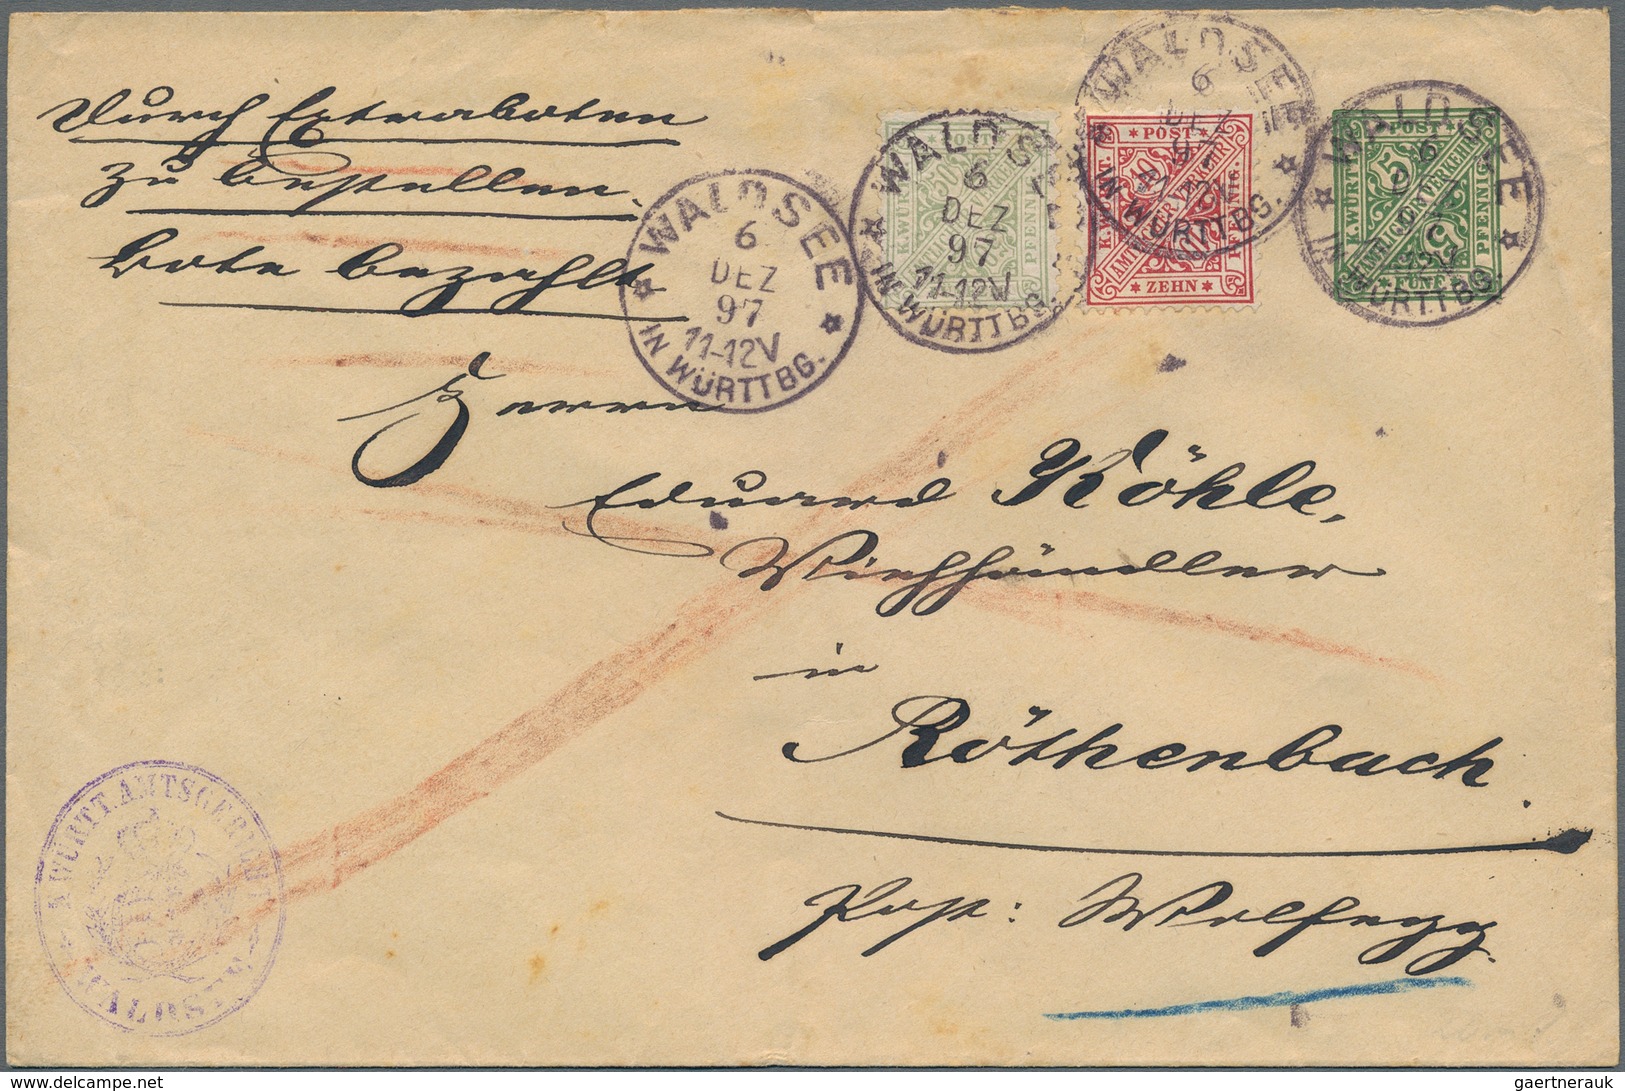 Durch Extraboten
zu bestellen.
bote bezahlt.
WALDSEE
6
DEZ
97
11-12V
IN WÜRTTBG.
WALDSEE
6
DEZ
97
11-12V
IN WÜRTTBG.
POST
K.WÜRTT.
PFENNIG
WALDSEE
6
DEZ
97
IN WÜRTTBG.
POST
K.WÜRTT.
AMTLICHER VERKEHR
PFENNIG.
ZEHN
WALDSEE
6
97
12V
IN WÜRTTBG.
POST
5
K.WÜRTT.
AMTLICHER VERKEHR
PFENNIG
5
FÜNF
Herrn
Eduard Köhle,
Viehhändler
in
Röthenbach.
Post: Wolfegg.
K. WÜRTT. AMTSGERICHT
WALDSEE
delcampe.net
gaertnerauk